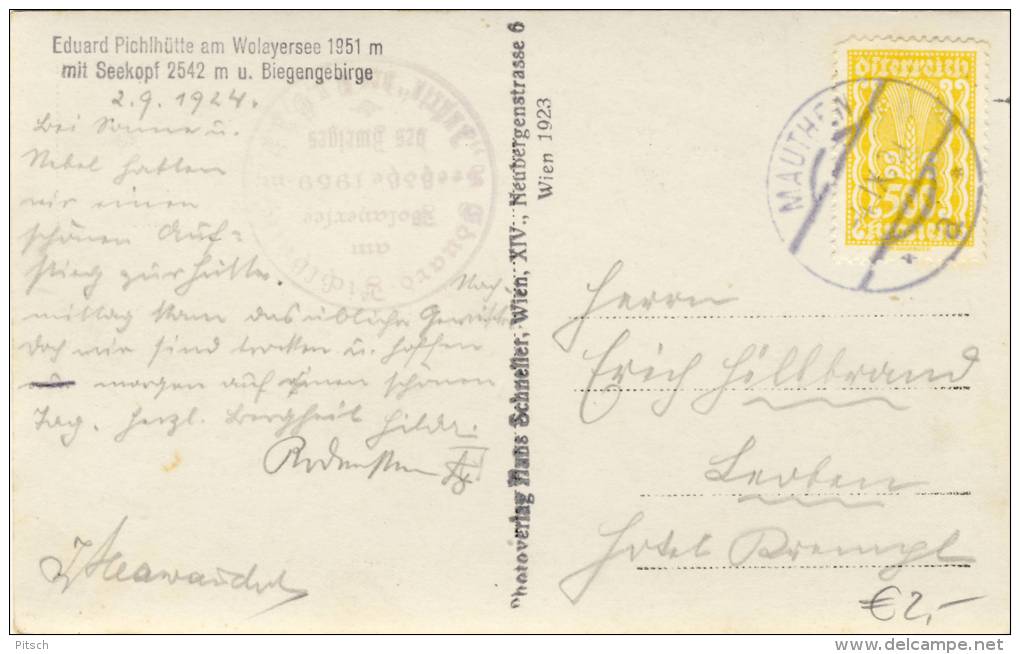 Eduard Pichlhütte am Wolayersee 1951 m
mit Seekopf 2542 m u. Biegengebirge
2.9.1924.
Bei Sonne u.
Nebel hatten
wir einen
schönen Auf-
stieg zur Hütte. Nach-
mittag kam das übliche Gewitter
doch wir sind trocken u. hoffen
morgen auf einen schönen
Tag. Herzl. Bergheil Hilde.
Photoverlag Hans Schneller, Wien, XIV., Neubergenstrasse 6
Wien 1923
Österreich
500
Kronen
MAUTHEN
Seehöhe 1959 m
des Zweiges
am
Wolayersee
Eduard
Herrn
Erich Hillbrand
Leoben
Hotel Krempl
€2,-
Pitsch
www.delcampe.net